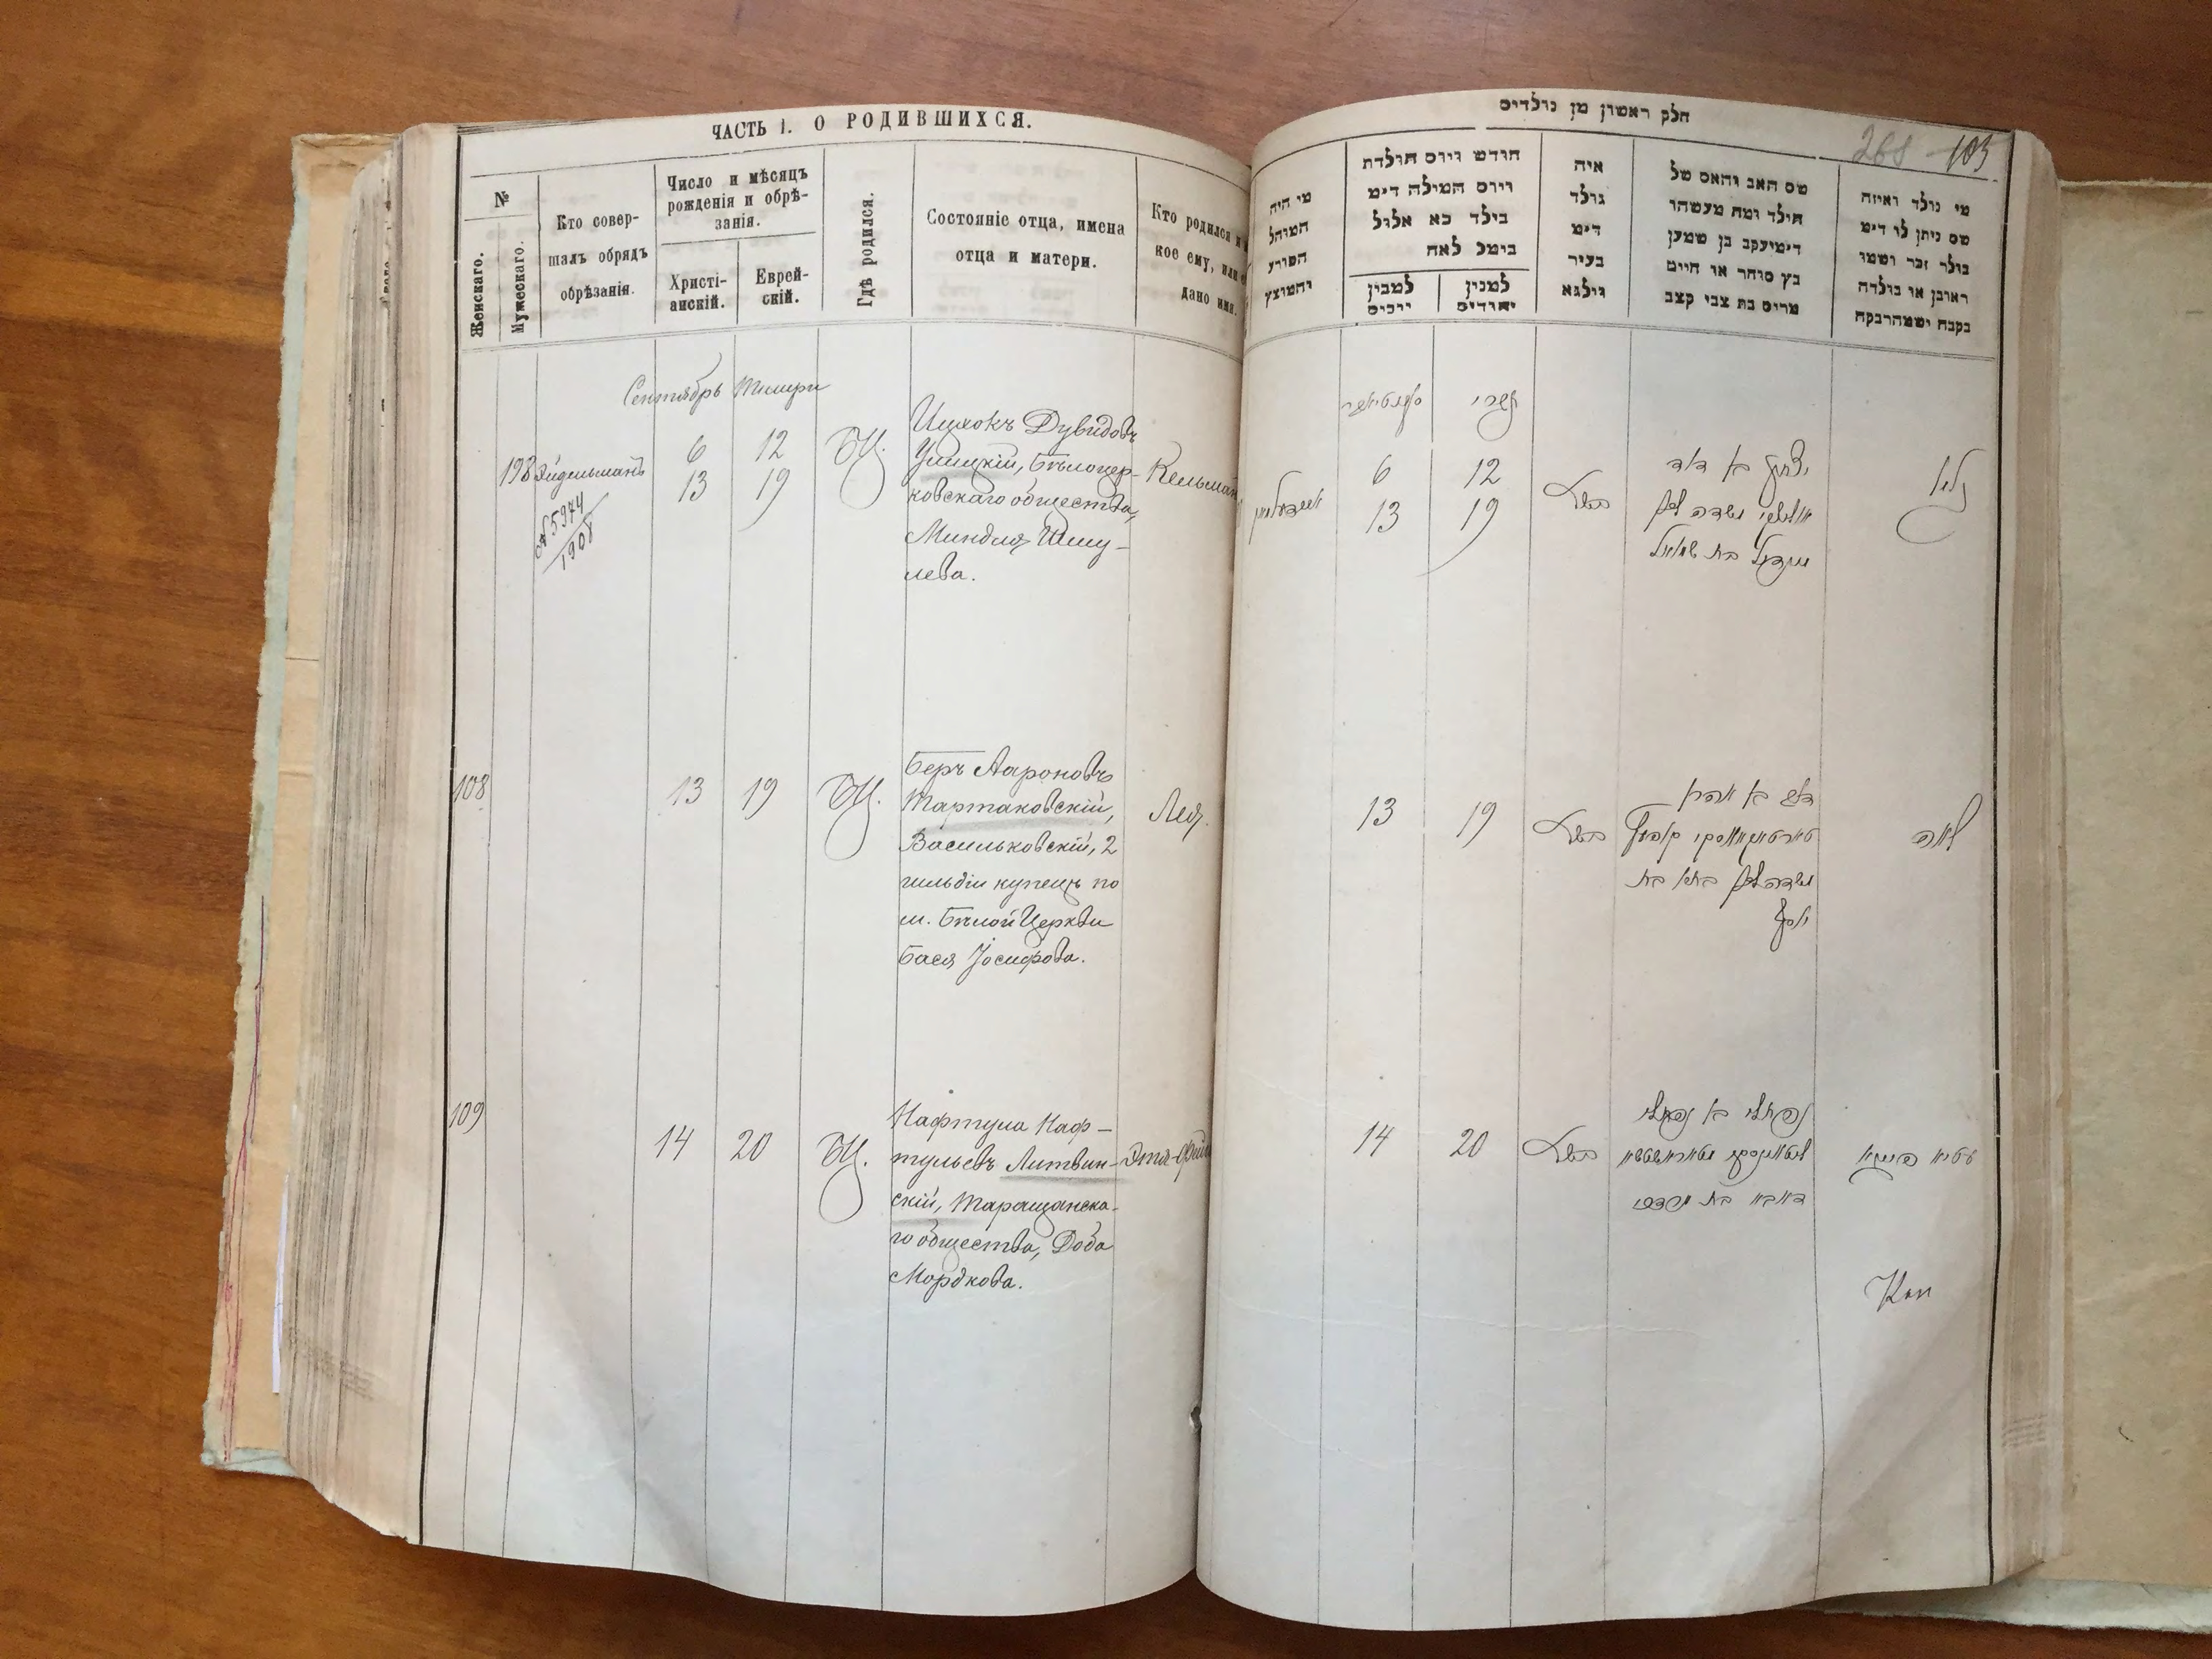 ЧАСТЬ I. О РОДИВШИХСЯ.
№
Женскаго.
Мужескаго.
Кто совер-
шалъ обрядъ
обрѣзанія.
Число и мѣсяцъ
рожденія и обрѣ-
занія.
Христі-
анскій.
Еврей-
скій.
Гдѣ родился.
Состояніе отца, имена
отца и матери.
Кто родился и
кое ему, или
дано имя.
Сентябрь Тишри
198 Эйдельманъ
№ 5974
1908
6 12
13 19
БЦ.
Ицхокъ Дувидовъ
Улицкій, Бѣлоцер-
ковскаго общества,
Миндля Шму-
лева.
Кельман
108
13 19
БЦ.
Беръ Аароновъ
Тартаковскій,
Васильковскій, 2
гильдіи купецъ по
м. Бѣлой Церкви
Бася Іосифова.
Лея.
109
14 20
БЦ.
Нафтула Наф-
тульевъ Литвин-
скій, Таращанска-
го общества, Доба
Мордкова.
Этя-
חלק ראשון מן נולדים
268 103
מי היה
המוהל
הפורע
והמוצץ
חודש ויום תולדת
ויום המילה דימ
בילד כא אלול
בימל לאח
למנין
יהודים
למבין
יוכים
איה
נולד
דימ
בעיר
ווילנא
שם האב והאם של
הילד ומה מעשהו
דימיעקב בן שמען
כץ סוחר או חיים
מרים בת צבי קצב
מי נולד ואיזה
שם ניתן לו דימ
נולד זכר ושמו
ראובן או נולדה
נקבה ושמהרבקה
תשרי
6 12
13 19
יצחק בא דוד
מינדיל בת שמואל
13 19
לאה
בער בא אהרן
טארטאקאווסקי
באסא בת
יוסף
14 20
נפתלי בא נפתלי
דאבא בת מרדכי